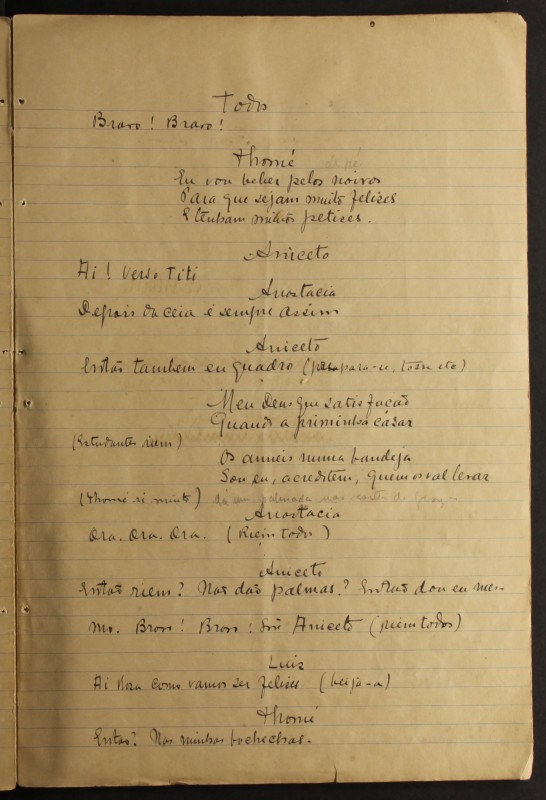 Todos
Bravo! Bravo!
Thomé de pé
Eu vou beber pelos noivos
Para que sejam muito felizes
E tenham muitos petizes.
Aniceto
Ai! Verso Titi
Anastacia
Depois da ceia é sempre assim
Aniceto
Então tambem eu quadro (prepara-se, tosse etc)
Meu Deus que satisfação
Quando a priminha casar
(Estudantes riem)
Os anneis numa bandeja
Sou eu, acreditem, quem os vai levar
(Thomé ri muito) dá um palmada nas costas de
Anastacia
Ora. Ora. Ora. (Riem todos)
Aniceto
Então riem? Nas dão palmas? Então dou eu mes-
mo. Bravo! Bravo! Snr Aniceto (riem todos)
Luiz
Ai Rosa como vamos ser felizes (beija-a)
Thomé
Então? Nas minhas bochechas.